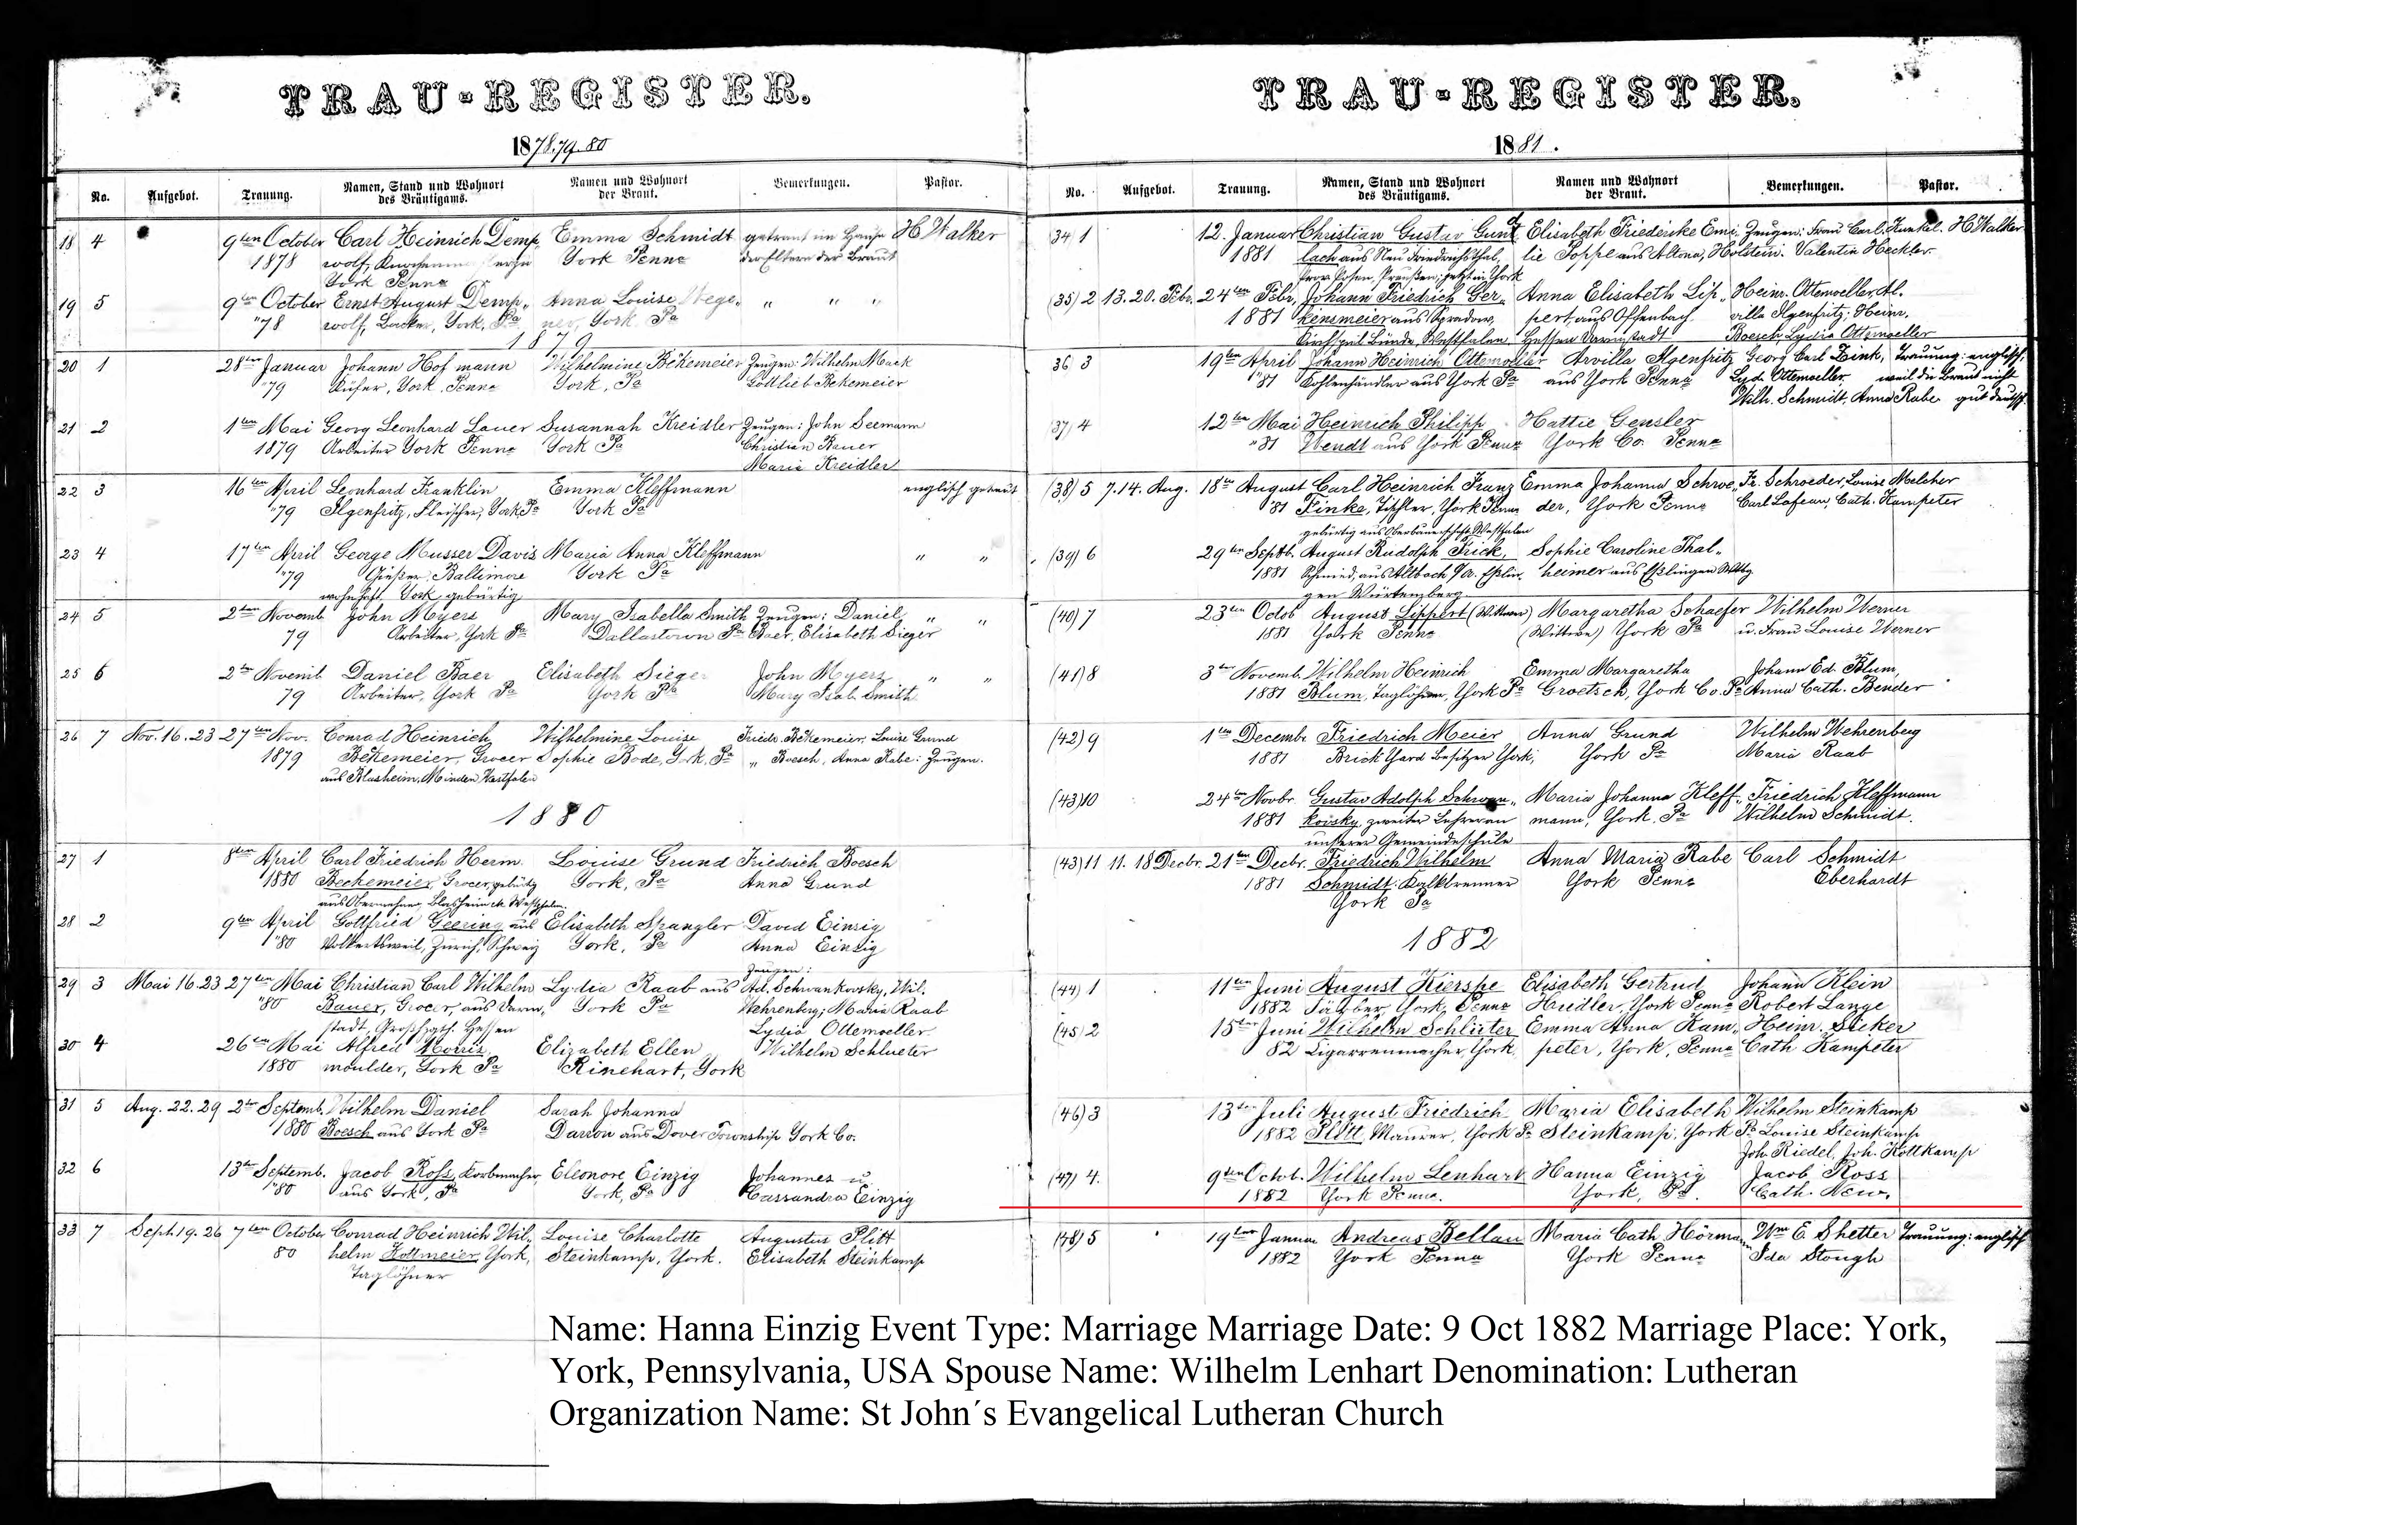 TRAU-REGISTER.
1878.79.80
No. Aufgebot. Trauung. Namen, Stand und Wohnort des Bräutigams. Namen und Wohnort der Braut. Bemerkungen. Pastor.
18 4 9ten October Carl Heinrich Demp, Emma Schmidt getraut im Hause H Walker
1878 wolf, York Penna der Eltern der Braut
York Penna
19 5 9ten October Ernst August Demp„ Anna Louise Wege„ „ „ „
"78 wolf, York, Pa ner, York Pa
1879
20 1 28ten Januar Johann Hofmann Wilhelmine Bekemeier Zeugen: Wilhelm Mack
"79 Küfer, York, Penna York, Pa Gottlieb Bekemeier
21 2 1ten Mai Georg Leonhard Lauer Susannah Kreidler Zeugen: John Seemann
1879 Arbeiter York Penna York Pa Christian Bauer
Maria Kreidler
22 3 16ten April Leonhard Franklin Emma Kleffmann englisch getraut
"79 Ilgenfritz, Fleischer, York Pa York Pa
23 4 17ten April George Musser Davis Maria Anna Kleffmann „ „
"79 Gießer, Baltimore York Pa
wohnhaft. York gebürtig
24 5 2ten Novemb John Meyers Mary Isabella Smith Zeugen: Daniel „ „
79 Arbeiter, York Pa Dallastown Pa Baer, Elisabeth Sieger
25 6 2ten Novemb. Daniel Baer Elisabeth Sieger John Myers „ „
79 Arbeiter, York Pa York Pa Mary Isab. Smith
26 7 Nov. 16. 23 27ten Nov. Conrad Heinrich Wilhelmine Louise Friedr. Bekemeier, Louise Grund
1879 Bekemeier, Grocer Sophie Bode, York, Pa „ Boesch, Anna Rabe: Zeugen.
aus Blasheim, Minden Westfalen
1880
27 1 8ten April Carl Friedrich Herm. Louise Grund Friedrich Boesch
1880 Beckemeier, Grocer, gebürtig York, Pa Anna Grund
aus Blasheim Westfalen.
28 2 9ten April Gottfried Geering aus Elisabeth Spangler David Einzig
"80 Volkertsweil, Zürich, Schweiz York, Pa Anna Einzig
29 3 Mai 16. 23 27ten Mai Christian Carl Wilhelm Lydia Raab aus Zeugen: Ad. Schwankovsky, Wil.
"80 Bauer, Grocer, aus Darm, York Pa Wehrenberg; Maria Raab
stadt, Hessen Lydia Ottemoeller
30 4 26ten Mai Alfred Morris, Elizabeth Ellen Wilhelm Schlueter
1880 moulder, York Pa Rinehart, York
31 5 Aug. 22. 29 2ten Septemb. Wilhelm Daniel Sarah Johanna
1880 Boesch aus York Pa Darron aus Dover Township York Co.
32 6 13ten Septemb. Jacob Ross, Korbmacher, Eleonore Einzig Johannes u.
"80 aus York, Pa York, Pa Cassandra Einzig
33 7 Sept. 19. 26 7ten October Conrad Heinrich Wil„ Louise Charlotte Augustus Plitt
80 helm Kottmeier, York, Steinkamp, York. Elisabeth Steinkamp
Taglöhner
TRAU-REGISTER.
1881.
No. Aufgebot. Trauung. Namen, Stand und Wohnort des Bräutigams. Namen und Wohnort der Braut. Bemerkungen. Pastor.
(34) 1 12. Januar Christian Gustav Gund Elisabeth Friedericke Emi„ Zeugen: Frau Carl. Kunkel. H. Walker
1881 lach aus Neu Friedrichsthal, lie Poppe aus Altona, Holstein. Valentin Heckler.
Prov. Posen, Preußen; jetzt in York
(35) 2 13. 20. Febr. 24ten Febr. Johann Friedrich Ger„ Anna Elisabeth Lip„ Heinr. Ottemoeller, Al.
1881 kensmeier aus Spradow, pert, aus Offenbach villa Ilgenfritz; Heinr.
Kirchspiel Bünde, Westfalen Hessen Darmstadt Boesch, Lydia Ottemoeller
36 3 19ten April Johann Heinrich Ottemoeller Arvilla Ilgenfritz Georg Carl Zink, Trauung: englisch.
"81 Kohlenhändler aus York Pa aus York Penna Lyd. Ottemoeller weil die Braut nicht
Wilh. Schmidt, Anna Rabe gut deutsch
(37) 4 12ten Mai Heinrich Philipp Hattie Gensler
"81 Wendt aus York Penna York Co. Penna
(38) 5 7. 14. Aug. 18ten August Carl Heinrich Franz Emma Johanna Schroe„ Fr. Schroeder, Louise Melcher
"81 Finke, Tischler, York Penna der, York Penna Carl Lafean, Cath. Kampeter
gebürtig aus Westfalen
(39) 6 29ten Septb. August Rudolph Frick, Sophie Caroline Thal„
1881 Schmied, aus Altbach Esslin„ heimer aus Esslingen Wttbg
gen Würtemberg
(40) 7 23ten Octob August Lippert (Wittwer) Margaretha Schaefer Wilhelm Werner
1881 York Penna (Wittwe) York Pa u. Frau Louise Werner
(41) 8 3ten Novemb. Wilhelm Heinrich Emma Margaretha Johann Ed. Blum,
1881 Blum, Taglöhner, York Pa Groetsch, York Co. Pa Anna Cath. Bender
(42) 9 1ten Decembr Friedrich Meier Anna Grund Wilhelm Wehrenberg
1881 Brick Yard Besitzer York, York Pa Maria Raab
(43) 10 24ten Novbr. Gustav Adolph Schwan„ Maria Johanna Kleff„ Friedrich Kleffmann
1881 kovsky, zweiter Lehrer an mann, York, Pa Wilhelm Schmidt.
unserer Gemeindeschule
(43) 11 11. 18 Decbr. 21ten Decbr. Friedrich Wilhelm Anna Maria Rabe Carl Schmidt
1881 Schmidt: Kalkbrenner York Penna Eberhardt
York Pa
1882
(44) 1 11ten Juni August Kierspe Elisabeth Gertrud Johann Klein
1882 Färber, York, Penna Heidler, York Penna Robert Lange
(45) 2 15ten Juni Wilhelm Schlüter Emma Anna Kam„ Heinr. Sieker
82 Cigarrenmacher, York, peter, York, Penna Cath Kampeter
(46) 3 13ten Juli August Friedrich Maria Elisabeth Wilhelm Steinkamp
1882 Plitt, Maurer, York Pa Steinkamp, York Pa Louise Steinkamp
Joh. Riedel, Joh. Kottkamp
(47) 4. 9ten Octob. Wilhelm Lenhart Hanna Einzig Jacob Ross
1882 York Penna. York, Pa. Cath. New.
(48) 5 19ten Januar Andreas Bellan Maria Cath Hörman„ Wm E. Shetter Trauung: englisch
1882 York Penna York Penna Ida Stough
Name: Hanna Einzig Event Type: Marriage Marriage Date: 9 Oct 1882 Marriage Place: York,
York, Pennsylvania, USA Spouse Name: Wilhelm Lenhart Denomination: Lutheran
Organization Name: St John´s Evangelical Lutheran Church